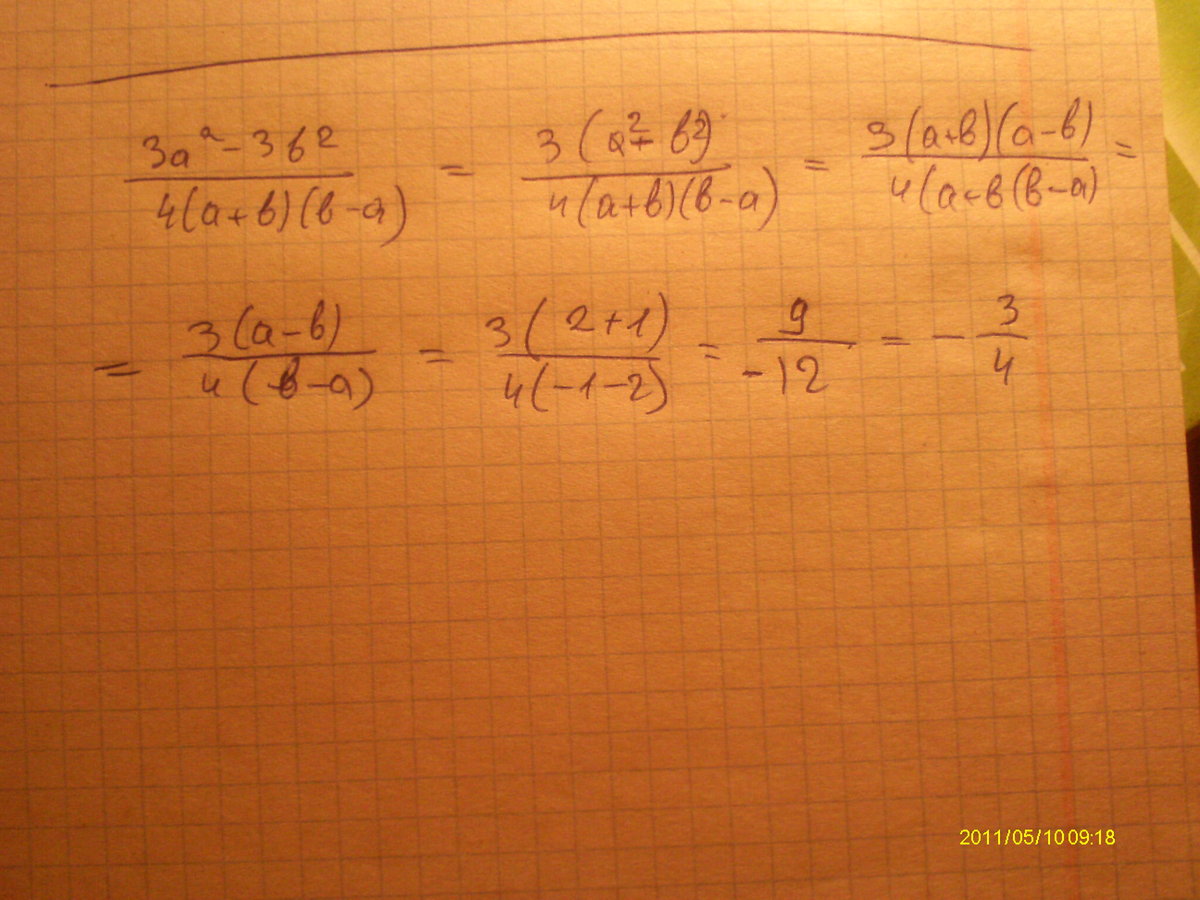 3a² - 3в² / 4(a+в)(в-a) = 3(a² - в²) / 4(a+в)(в-a) = 3(a+в)(a-в) / 4(a+в(в-a) =
= 3(a-в) / 4(в-a) = 3(2+1) / 4(-1-2) = 9 / -12 = - 3 / 4
2011/05/10 09:18